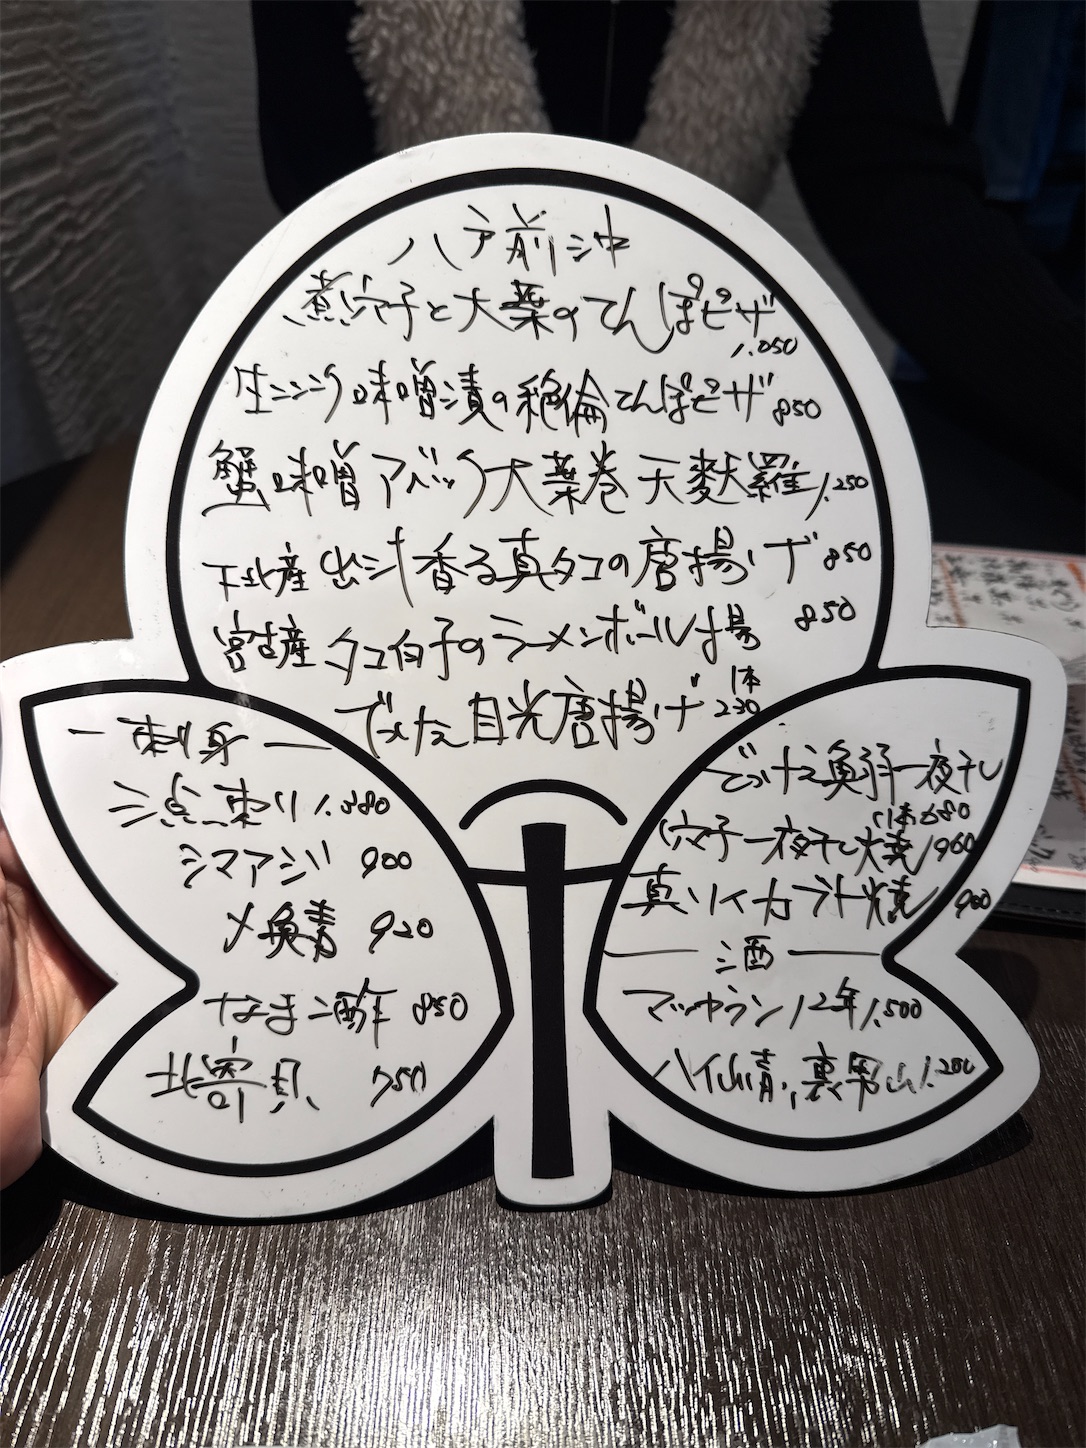 八戸前沖
煮穴子と大葉のてんぽピザ
1.050
生ニンニク味噌漬の絶倫てんぽピザ 850
蟹味噌アボック大葉巻天麩羅 1.250
下北産 出汁香る真タコの唐揚げ 850
宮古産 タコ白子のラーメンボール揚 850
でめえ目光唐揚げ 1本 230
ー刺身ー
三点刺り 1.380
シマアジ 900
〆鯖 920
なまこ酢 850
北寄貝 750
でっけえ 一夜干し
1本 680
穴子一夜干し焼 960
真ソイカブト焼 900
ー酒ー
マッカラン12年 1.500
八仙 裏男山 1.250